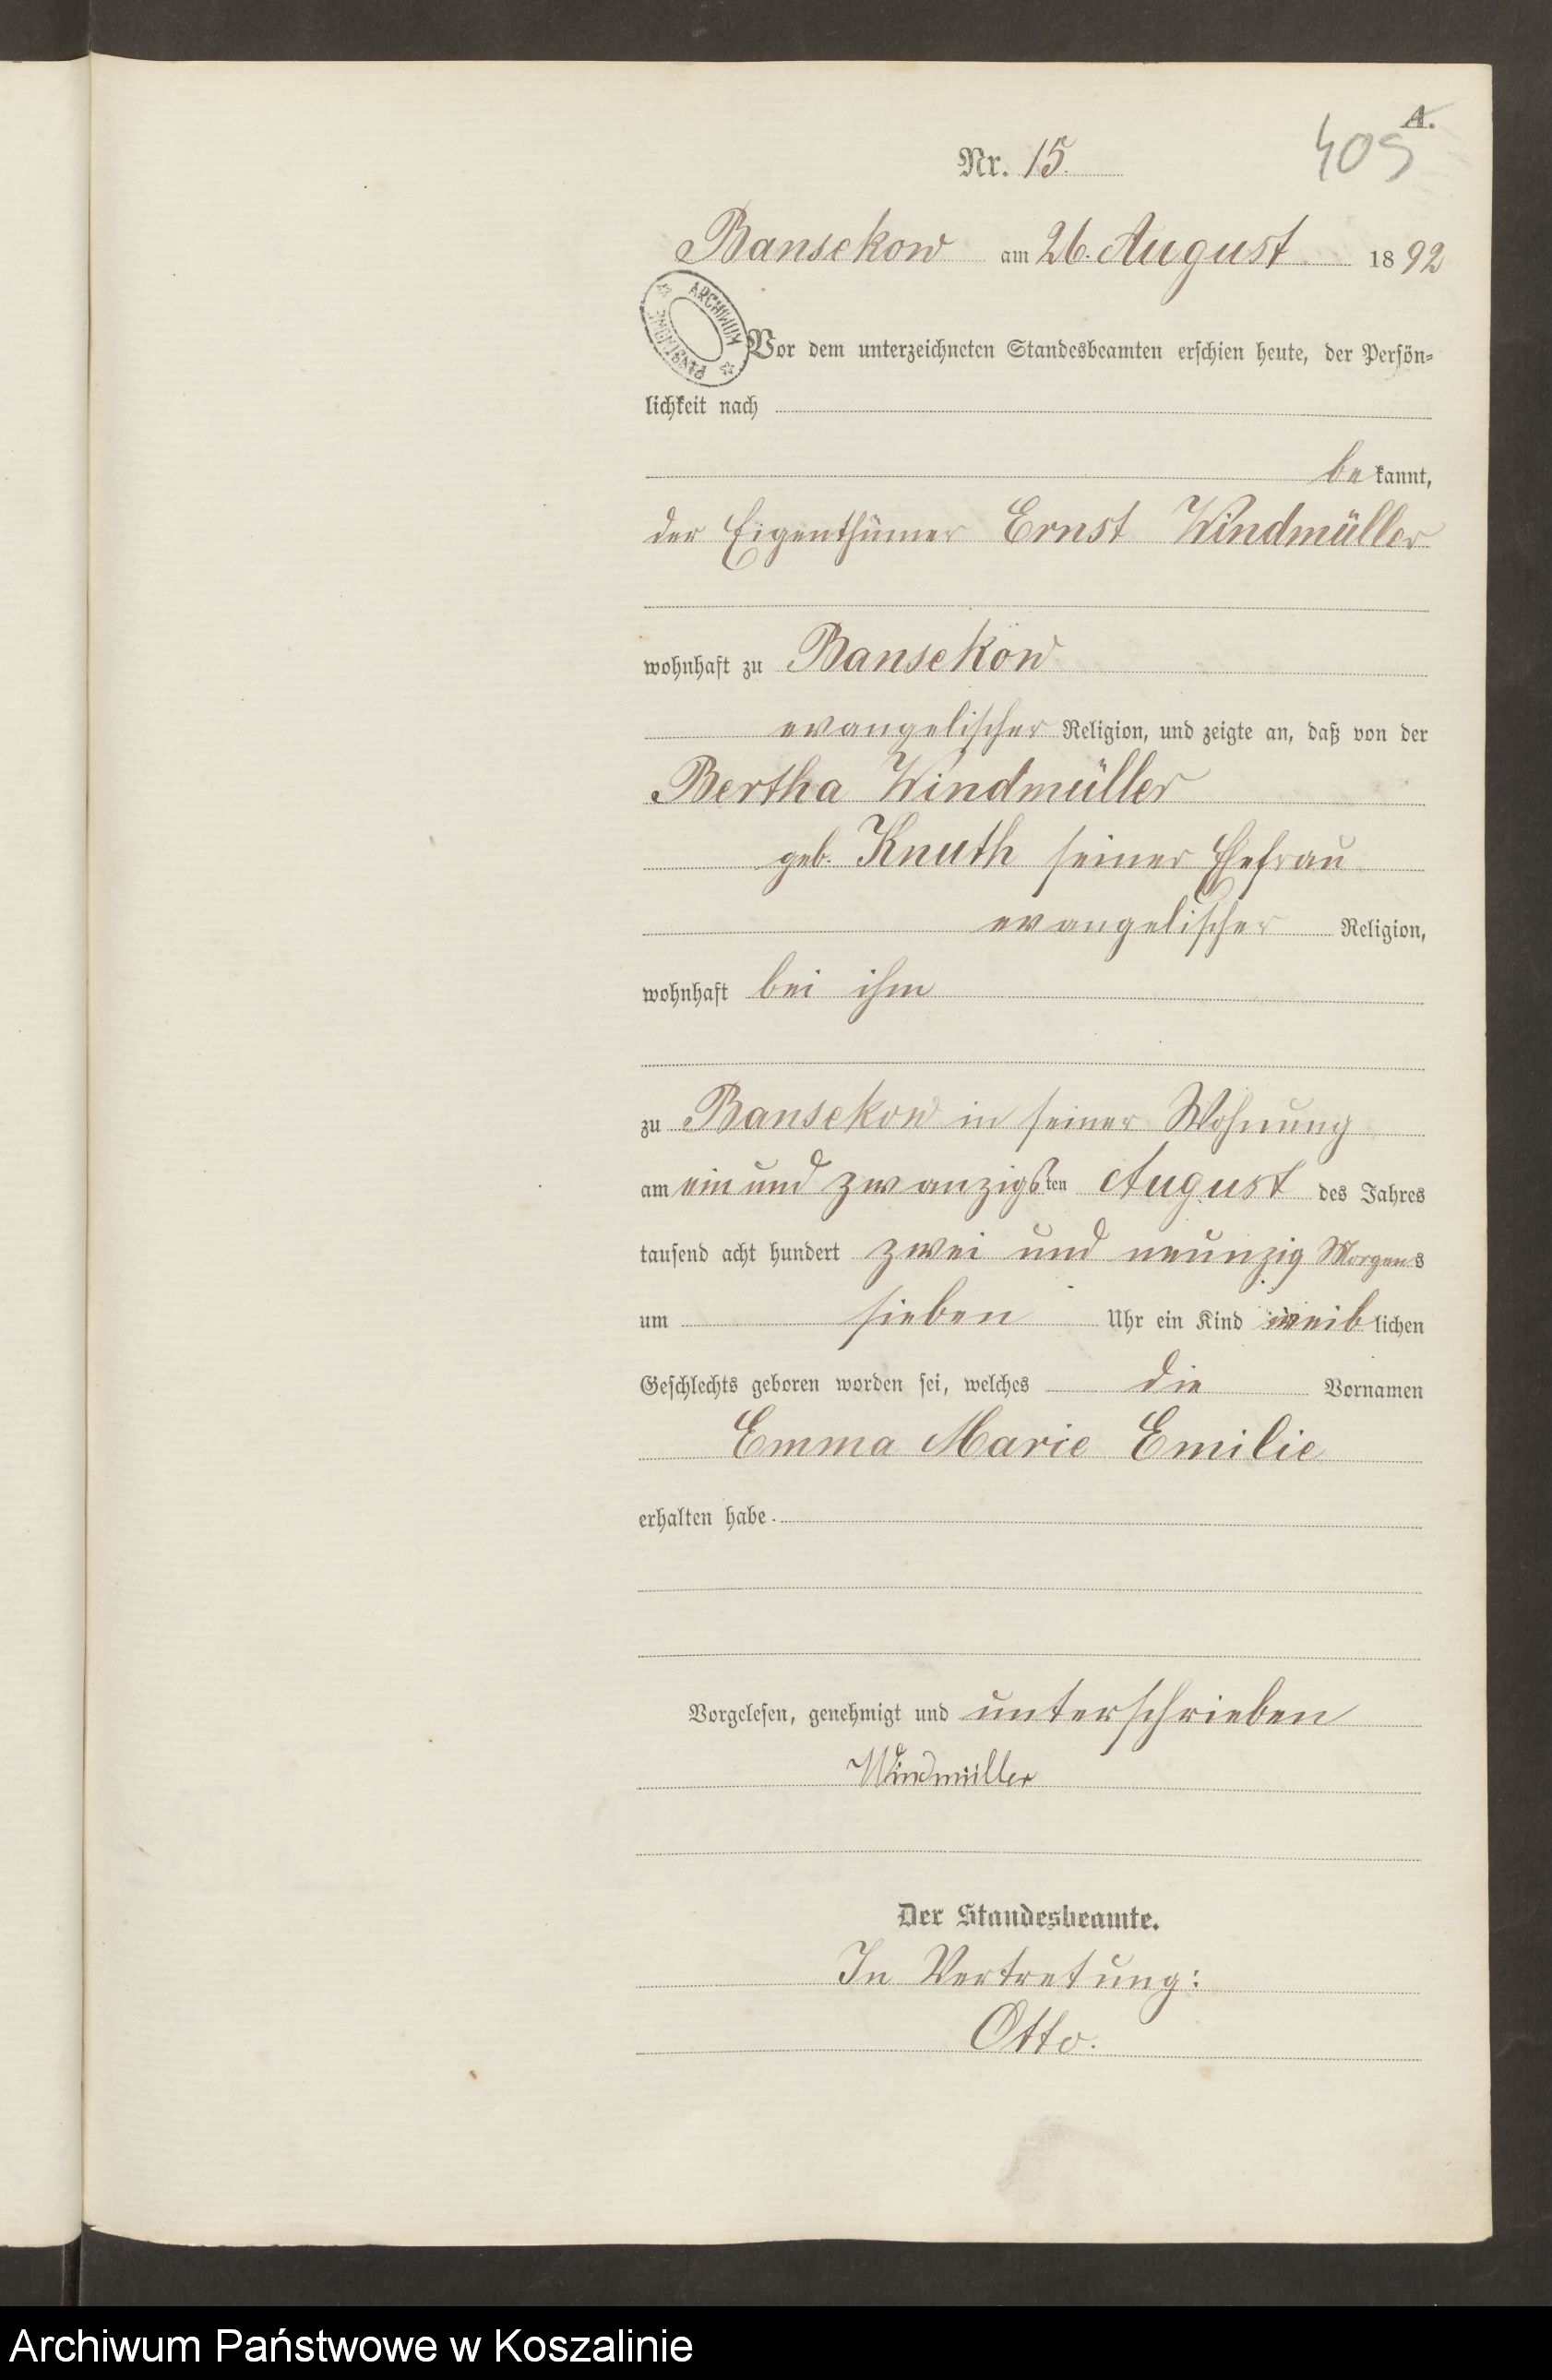 A.
405
Nr. 15.
Bansekow am 26. August 1892
ARCHIWUM PAŃSTWOWE
Vor dem unterzeichneten Standesbeamten erschien heute, der Persön-
lichkeit nach
bekannt,
der Eigenthümer Ernst Windmüller
wohnhaft zu Bansekow
evangelischer Religion, und zeigte an, daß von der
Bertha Windmüller
geb. Knuth seiner Ehefrau
evangelischer Religion,
wohnhaft bei ihm
zu Bansekow in seiner Wohnung
am ein und zwanzigsten August des Jahres
tausend acht hundert zwei und neunzig Morgens
um sieben Uhr ein Kind weiblichen
Geschlechts geboren worden sei, welches die Vornamen
Emma Marie Emilie
erhalten habe.
Vorgelesen, genehmigt und unterschrieben
Windmüller
Der Standesbeamte.
In Vertretung:
Otto.
Archiwum Państwowe w Koszalinie